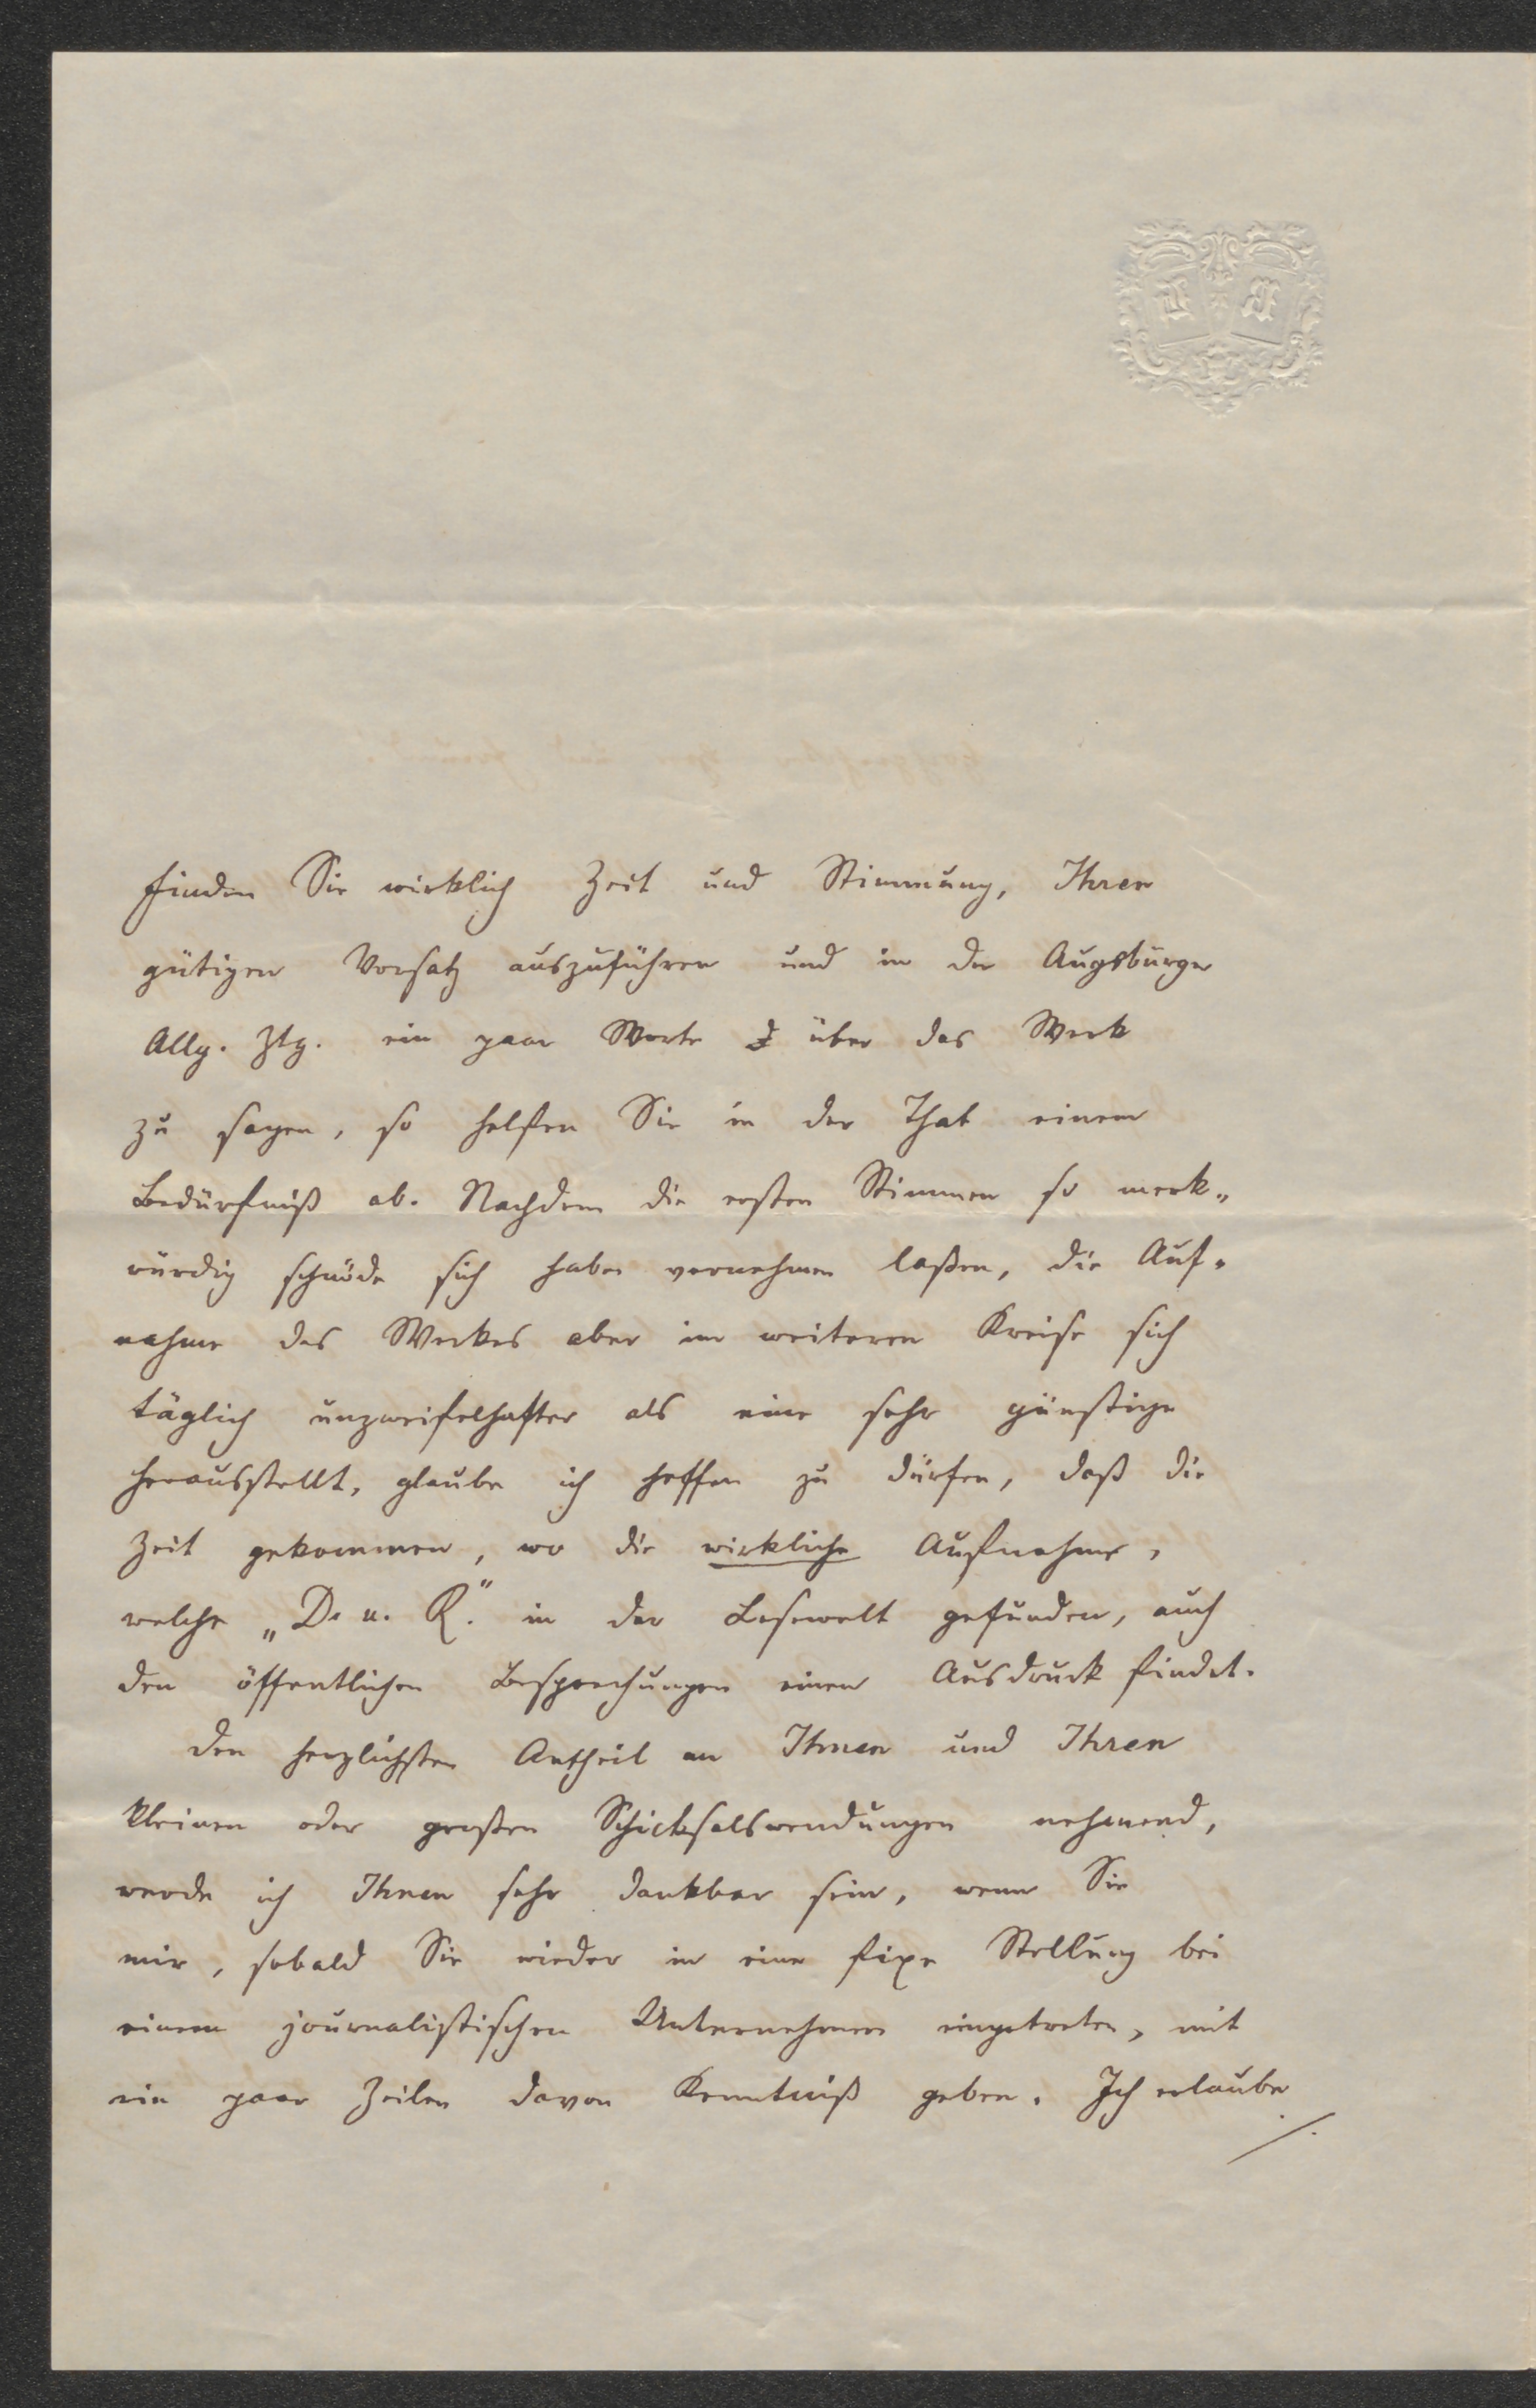 finden Sie wirklich Zeit und Stimmung, Ihren
gütigen Vorsatz auszuführen und in der Augsburger
Allg. Ztg. ein paar Worte über das Werk
zu sagen, so helfen Sie in der That einem
Bedürfniß ab. Nachdem die ersten Stimmen so merk„
würdig schnöde sich haben vernehmen laßen, die Auf„
nahme des Werkes aber im weiteren Kreise sich
täglich unzweifelhafter als eine sehr günstige
herausstellt, glaube ich hoffen zu dürfen, daß die
Zeit gekommen, wo die wirkliche Aufnahme,
welche „D. u. R.“ in der Lesewelt gefunden, auch
den öffentlichen Besprechungen einen Ausdruck findet.
Den herzlichsten Antheil an Ihnen und Ihren
kleinen oder großen Schicksalswendungen nehmend,
werde ich Ihnen sehr dankbar sein, wenn Sie
mir, sobald Sie wieder in eine fixe Stellung bei
einem journalistischen Unternehmen eingetreten, mit
ein paar Zeilen davon Kenntniß geben. Ich erlaube
./.